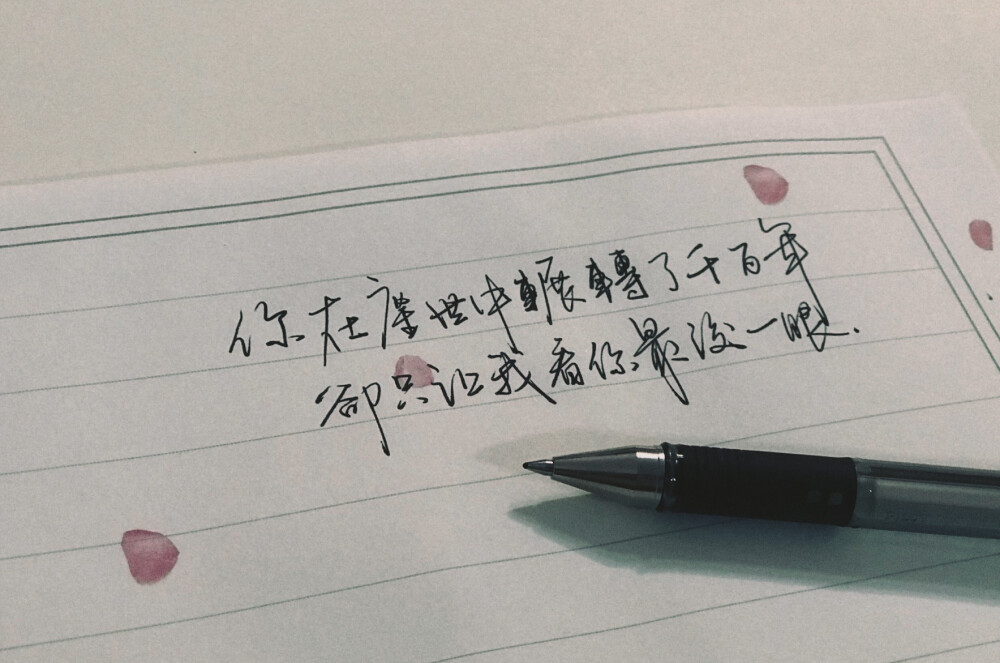 你在尘世中輾轉了千百年
卻只让我看你最後一眼.